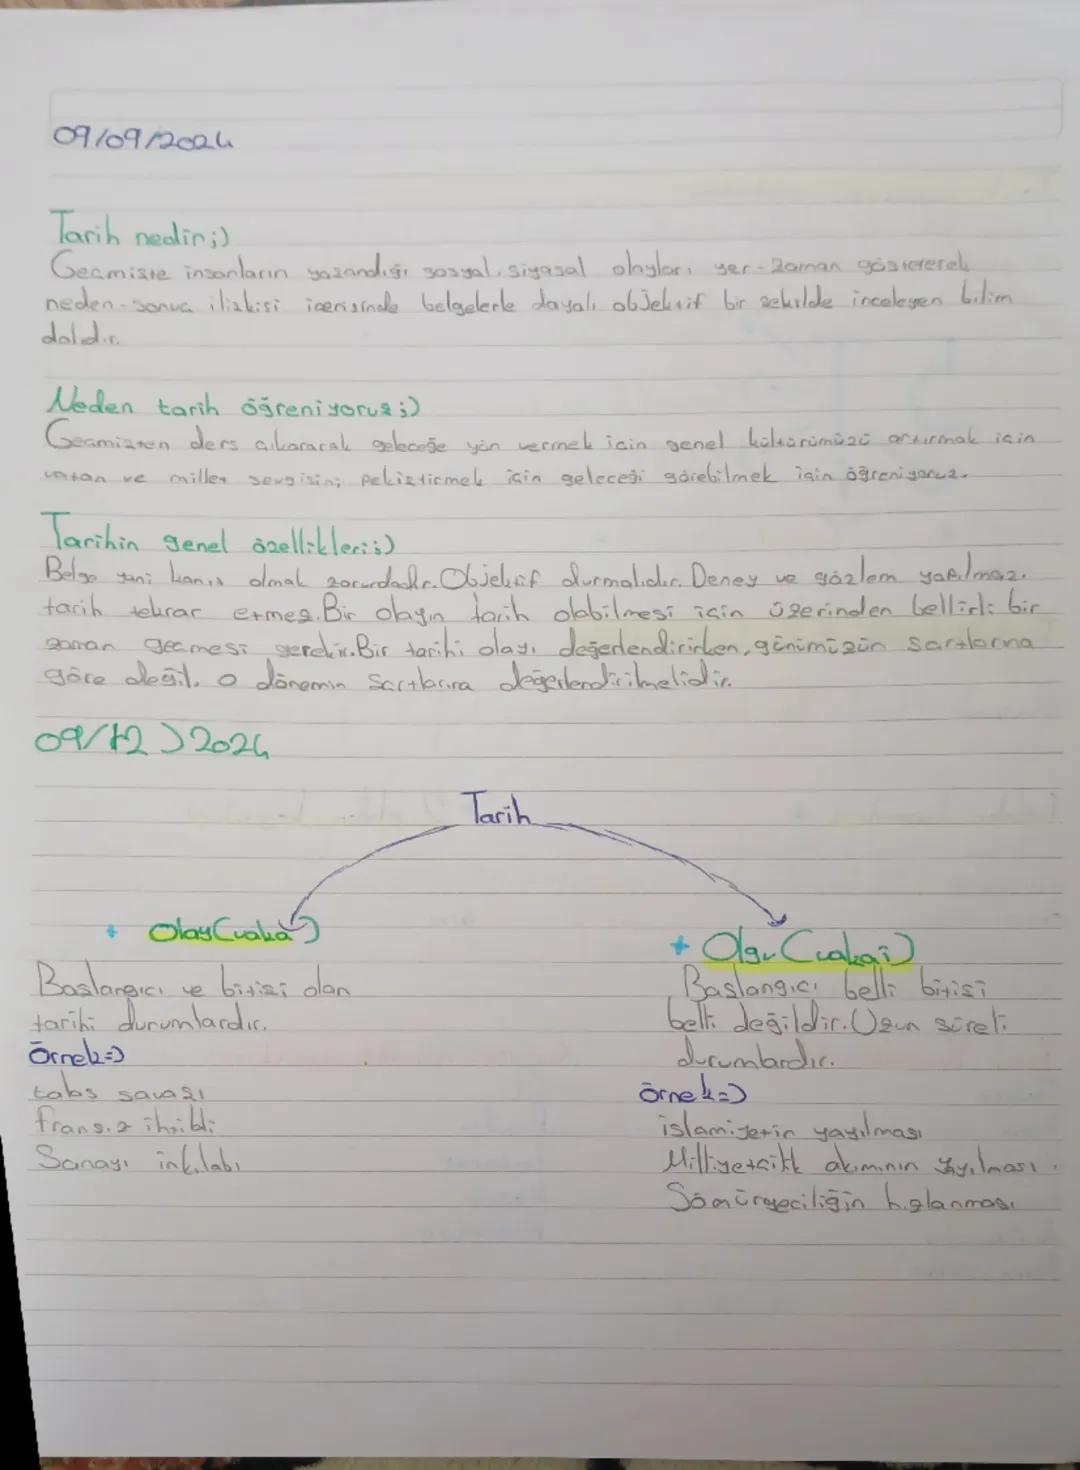 09/09/2024
Tarih nedir;)
Geçmişte insanların yaşandığı sosyal, siyasal olayları yer-zaman göstererek
neden-sonuç ilişkisi içerisinde belgelerle dayalı objektif bir şekilde inceleyen bilim
dalıdır.
Neden tarih öğreniyoruz;)
Geçmişten ders çıkararak geleceğe yön vermek için genel kültürümüzü artırmak için
vatan ve millet sevgisini pekiştirmek için geleceği görebilmek için öğreniyoruz.
Tarihin genel özellikleri;)
Belge yani kanıt olmak zorundadır. Objektif durmalıdır. Deney ve gözlem yapılmaz.
tarih tekrar etmez. Bir olayın tarih olabilmesi için üzerinden bellirli bir
zaman geçmesi gerekir. Bir tarihi olayı değerlendirirken, günümüzün şartlarına
göre değil, o dönemin şartlarına değerlendirilmelidir.
09/12/2024
Tarih
+ Olay(vaka)
Başlangıcı ve bitişi olan
tarihi durumlardır.
Örnek=)
talas savaşı
fransız ihtilali
Sanayi inkılabı
+ Olgu (vakai)
Başlangıcı belli bitişi
belli değildir. Uzun süreli
durumlardır.
örnek=)
islamiyetin yayılması
Milliyetçilik akımının yayılması.
Sömürgeciliğin hızlanması